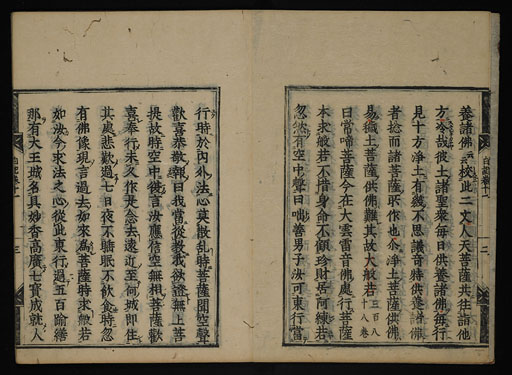 養諸佛云挍此二文人天菩薩共往諸他
方冷故彼土諸聖衆每日供養諸佛每行
見十方淨土有幾不思議音特供養諸佛
者捻而諸菩薩所作也介淨土菩薩供佛
易穢土菩薩供佛難其故大般若三百八十八卷
曰常啼菩薩今在大雲雷音佛處行菩薩
本求般若不惜身命不顧珍財居阿練若
忽然有空中聲曰咄善男子汝可東行當
二
行時於内外法心莫散乱時菩薩聞空聲
歡喜恭敬報曰我當從教我欲證無上菩
提故時空中復言汝應信空無相菩薩歡
喜奉行未久作是念去遠近至何城即住
其處悲歎過七日夜不睡眠不飲食時忽
有佛像現言過去如來為菩薩時求般若
如汝今求法之心從此東行過五百踰繕
那有大王城名具妙香高廣七寶成就人
三